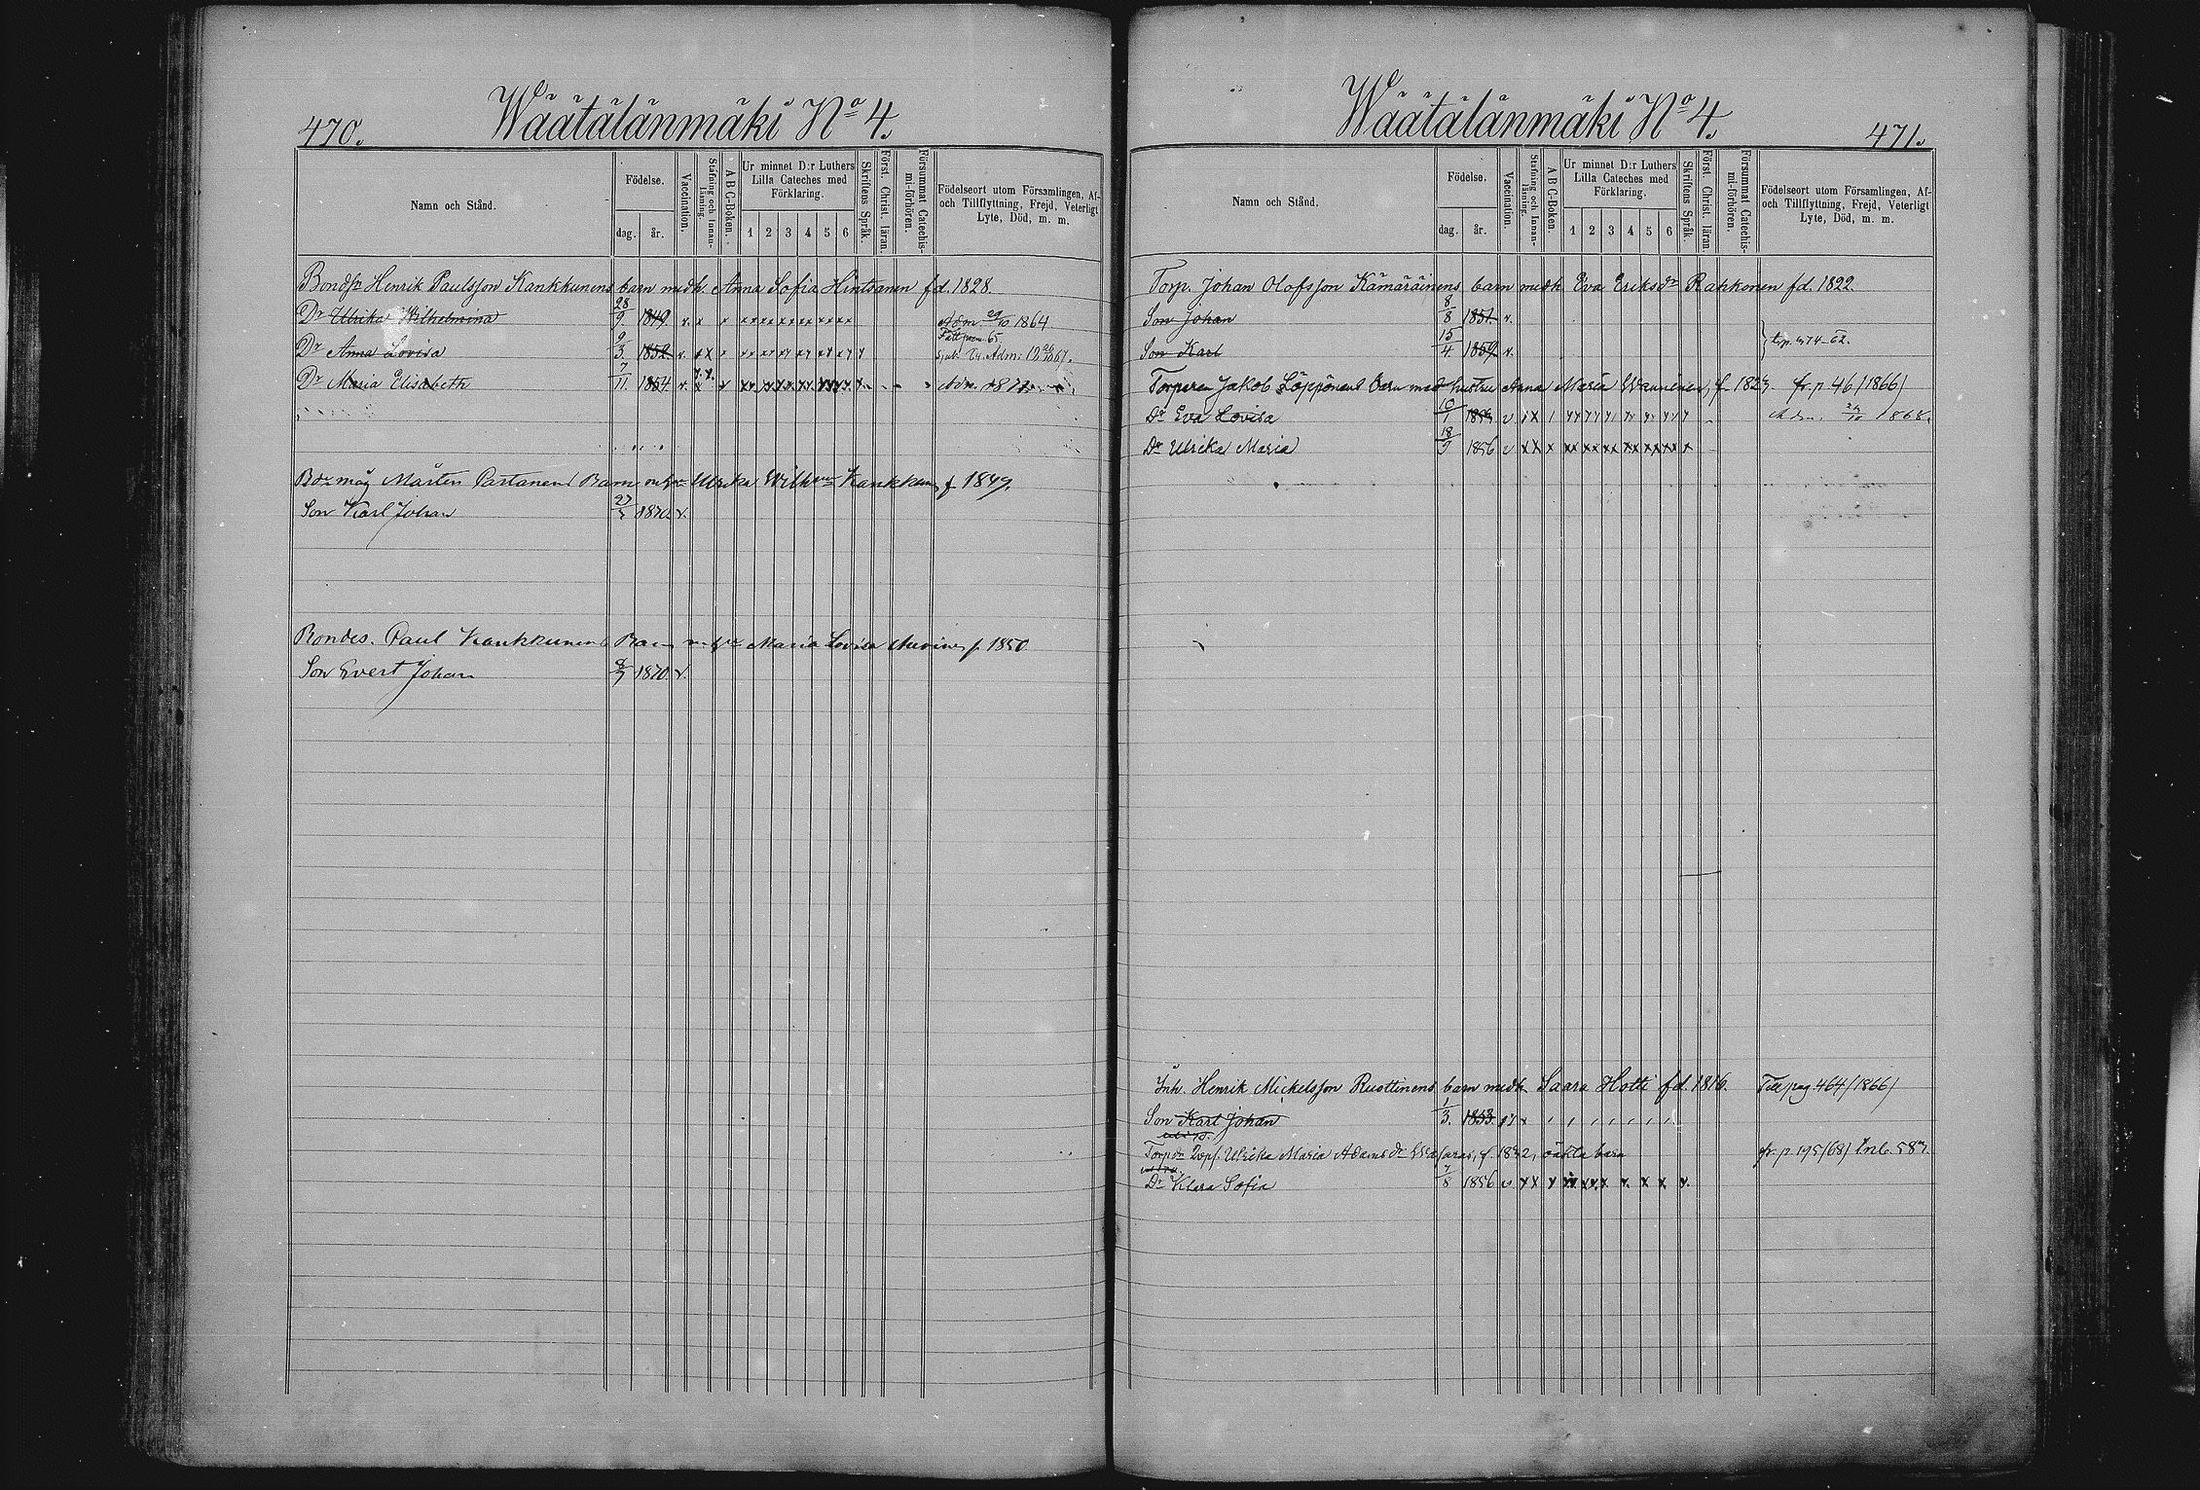 470.
Wäätälänmäki No 4.
Namn och Stånd.
Födelse.
dag. år.
Vaccination.
Stafning och Innan-läsning.
A B C-Boken.
Ur minnet D:r Luthers Lilla Cateches med Förklaring.
1 2 3 4 5 6
Skriftens Språk.
Först. Christ. läran.
Försummat Catechis-mi-förhören.
Födelseort utom Församlingen, Af- och Tillflyttning, Frejd, Veterligt Lyte, Död, m. m.
Bondsn Henrik Paulsson Kankkunens barn medh. Anna Sofia Hintsanen fd. 1828.
Dr Ulrika Wilhelmina 28/9 1849 v. Adm. 29/10 1864
Dr Anna Lovisa 9/3 1852 v.
Dr Maria Elisabeth 7/11 1854 v.
Mårten Partanens Barn Ulrika Kankkunen f 1849.
Son Karl Johan 1870. v.
Bondes. Paul Kankkunens Barn Maria Lovisa f. 1850
Son Evert Johan 8/7 1870 v.
471.
Wäätälänmäki No 4.
Namn och Stånd.
Födelse.
dag. år.
Vaccination.
Stafning och Innan-läsning.
A B C-Boken.
Ur minnet D:r Luthers Lilla Cateches med Förklaring.
1 2 3 4 5 6
Skriftens Språk.
Först. Christ. läran.
Försummat Catechis-mi-förhören.
Födelseort utom Församlingen, Af- och Tillflyttning, Frejd, Veterligt Lyte, Död, m. m.
Torp. Johan Olofsson Kämäräinens barn medh. Eva Eriksdr Rahkonen fd. 1822.
Son Johan 8/8 1851. v.
Son Karl 15/4 1859 v.
Jakob Löppönens barn med hustru Anna Maria fr. p 46/1866/
Dr Eva Lovisa 10/1 v 1868.
Dr Ulrika Maria 18/9 1856 v
Inh. Henrik Mickelsson Ruottinens barn medh. Saara Hotti fd. 1816. Till pag 464/1866/
Son Karl Johan 1/3. 1853.
Ulrika Maria Adamsdr oäkta barn fr. p. 195/68/
Dr Klara Sofia 7/8 1856 v